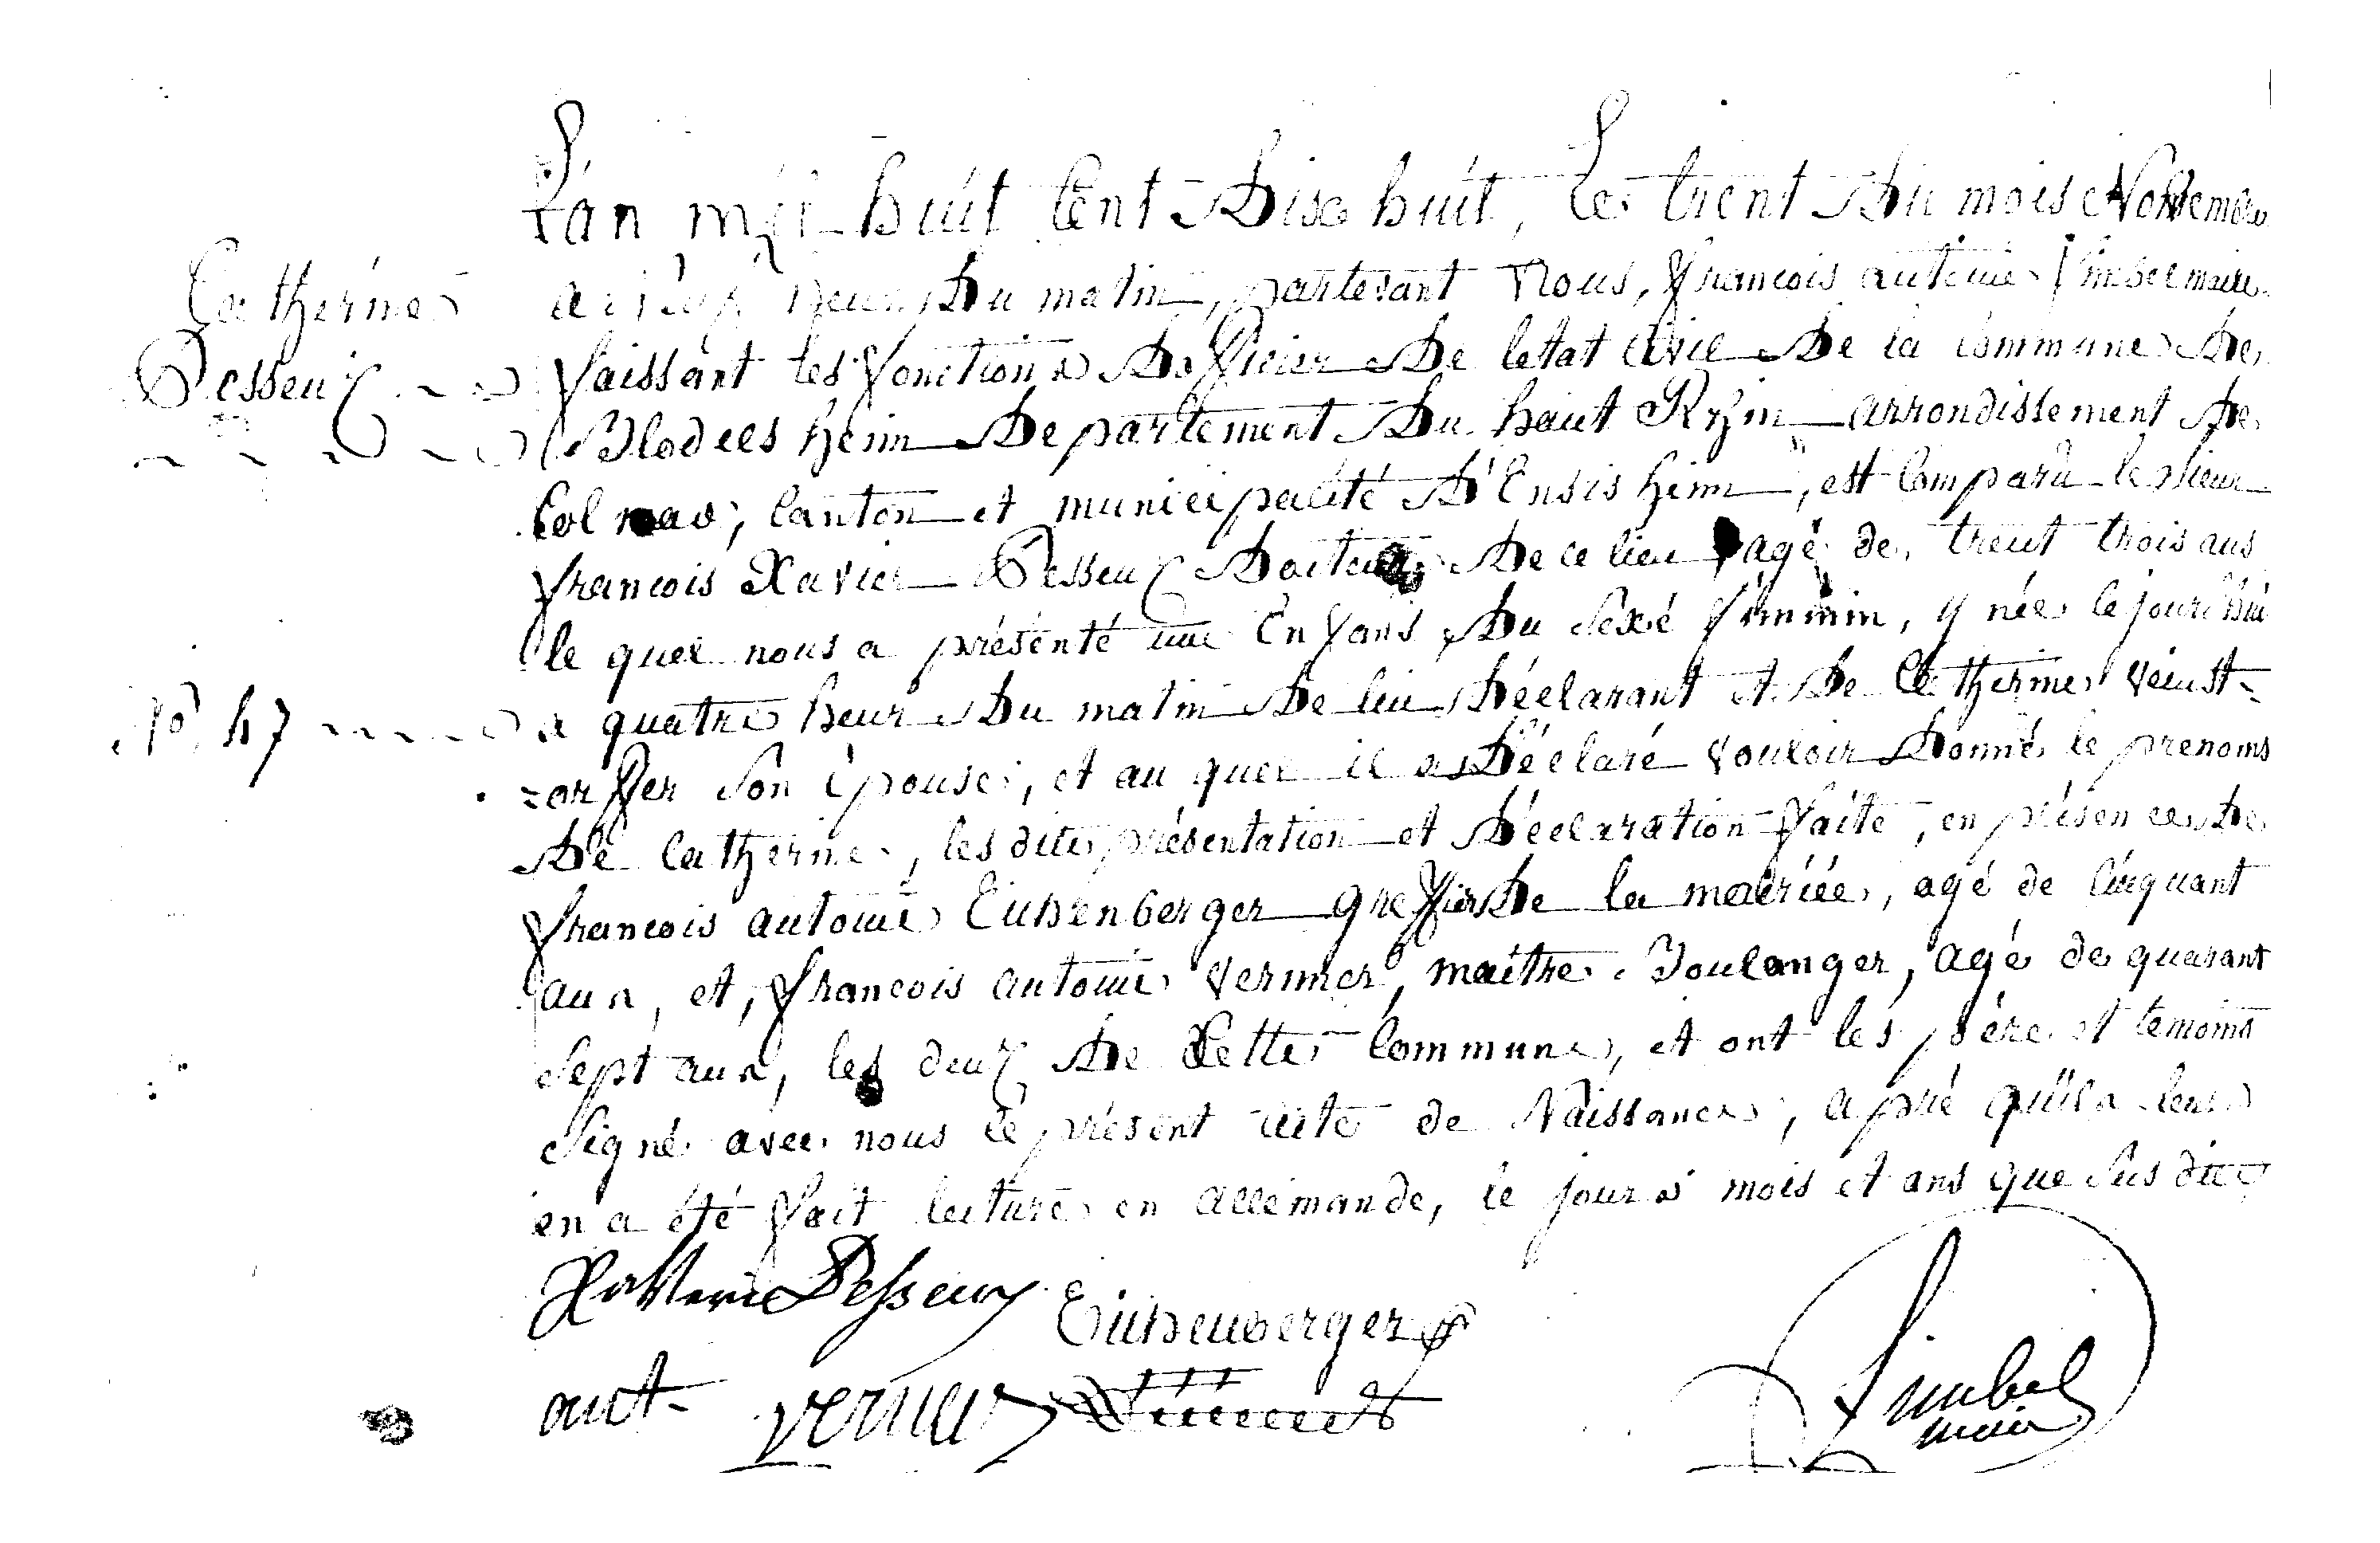 L'an mil huit Cent Dixe huit, Le trent Du mois Novemere
Catherine
a neuf heur Du matin, partevant Nous, francois antoine Simbel maire
Desseux
faissant les fonctions D'officier De letat Civil De la commune De
Blodelsheim Departement Du haut Rhin arrondissement De
Colmar, Canton et municipalité D'Ensisheim, est Comparu le Sieur
francois Xavier Desseux Docteur De ce lieu agé de trent trois ans
le quel nous a présenté une Enfans Du Sexé féminin, y née le jourdhui
No 47
a quatre heur Du matin De lui Déclarant et De Catherine Veinst-
=orffer Son épouse, et au quel il a Déclaré Vouloir Donné le prenoms
De Catherine, les dite présentation et Déclaration faite, en présence De
francois antoine Eissenberger greffier De la mairiée, agé de Cinquant
ans, et, francois antoine Verner, maitre Boulanger, agé de quarant
Sept ans, les deux De Cette Commune, et ont les pére et temoins
Signé avec nous le présent acte de Naissance, apré quils leur
en a été fait lecture en allemande, le jours mois et ans que Sus dit
Xaveri Desseux Eissenberger
ant. Verner
Simbel
maire